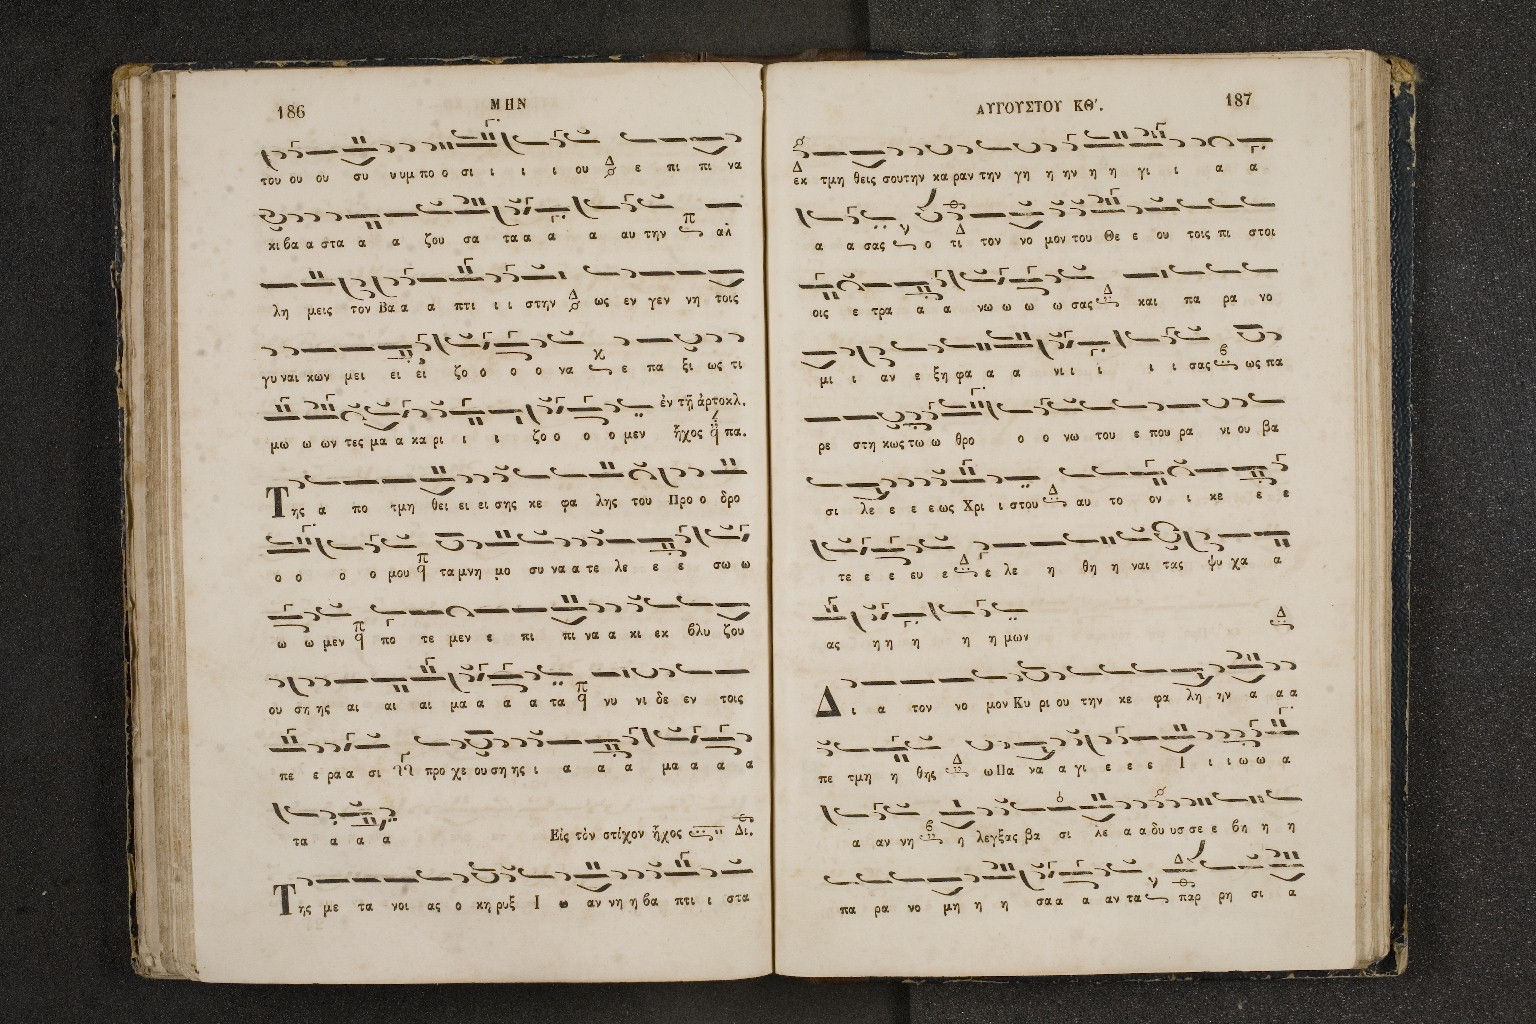 186
ΜΗΝ
του ου ου συ υ υμ πο ο σι ι ι ι ου Δ ε πι πι να
κι βα α στα α α ζου σα τα α α α αυ την π αλ
λη μεις τον Βα α α πτι ι ι στην Δ ως εν γεν νη τοις
γυ ναι κων μει ει ει ζο ο ο ο να ε πα ξι ως τι
μω ω ων τες μα α κα ρι ι ι ζο ο ο ο μεν ἦχος πα.
ἐν τῇ ἀρτοκλ.
Της α πο τμη θει ει ει σης κε φα λης του Προ ο δρο
ο ο ο ο μου π τα μνη μο συ να α τε λε ε ε σω ω
ω ω μεν π πο τε μεν ε πι πι να α κι εκ βλυ ζου
ου ση ης αι αι αι μα α α α τα π νυ νι δε εν τοις
πε ε ρα α σι προ χε ου ση ης ι α α α μα α α α
τα α α α Εἰς τὸν στίχον ἦχος Δι.
Της με τα νοι ας ο κη ρυξ Ι ω αν νη η βα πτι ι στα
ΑΥΓΟΥΣΤΟΥ ΚΘ'.
187
Δ
εκ τμη θεις σου την κα ραν την γη η ην η η γι ι α α
α α σας ο τι τον νο μον του Θε ε ου τοις πι στοι
οις ε τρα α α νω ω ω ω σας Δ και πα ρα νο
μι ι αν ε ξη φα α α νι ι ι ι ι σας ως πα
ρε στη κως τω ω θρο ο ο νω του ε που ρα νι ου βα
σι λε ε ε ε ως Χρι ι στου Δ αυ το ον ι κε ε ε
τε ε ε ευ ε Δ ε λε η θη η ναι τας ψυ χα α
ας η η η η η μων Δ
Δι α τον νο μον Κυ ρι ου την κε φα λη ην α α α
πε τμη η θης Δ ω Πα να α γι ε ε ε Ι ι ι ω ω α
α αν νη η λεγξας βα σι λε α α δυ υσ σε ε βη η η
πα ρα νο μη η η σα α α αν τα παρ ρη σι α